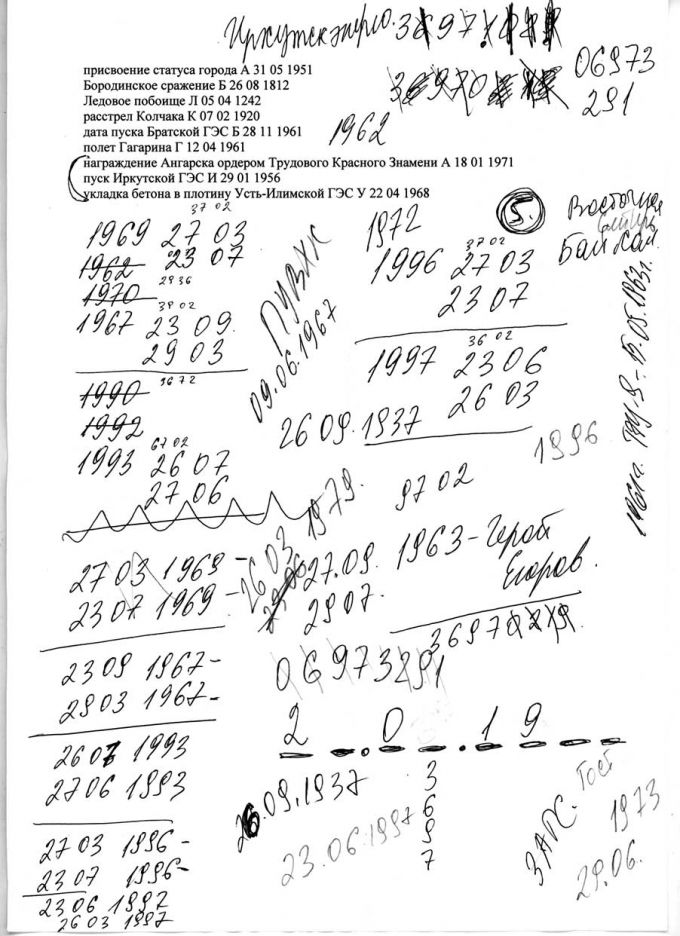 Иркутскэнерго.
06973
291
присвоение статуса города А 31 05 1951
Бородинское сражение Б 26 08 1812
Ледовое побоище Л 05 04 1242
расстрел Колчака К 07 02 1920
дата пуска Братской ГЭС Б 28 11 1961
полет Гагарина Г 12 04 1961
награждение Ангарска орденом Трудового Красного Знамени А 18 01 1971
пуск Иркутской ГЭС И 29 01 1956
укладка бетона в плотину Усть-Илимской ГЭС У 22 04 1968
1962
5.
Восточная
Сибирь
Байкал
37 02
1969 27 03
1962 23 07
1970
1967 23 09.
29 03
1990
1992
67 02
1993 26 07
27 06
ПУВЖК
09.06.1967
1972
37 02
1996 27 03
23 07
36 02
1997 23 06
26 03
26 09.1937
1996
97 02
1979.
26 03
27.09.
29 07.
1963 - Герой
Егоров.
27 03 1969 -
23 07 1969 -
23 09 1967 -
29 03 1967 -
06973291
26 07 1993
27 06 1993
2 0 19
26.09.1937
23.06.1997
3
6
9
7
ЗАГС.
Гост
1973
29.06.
27 03 1996 -
23 07 1996 -
23 06 1997
26 03 1997